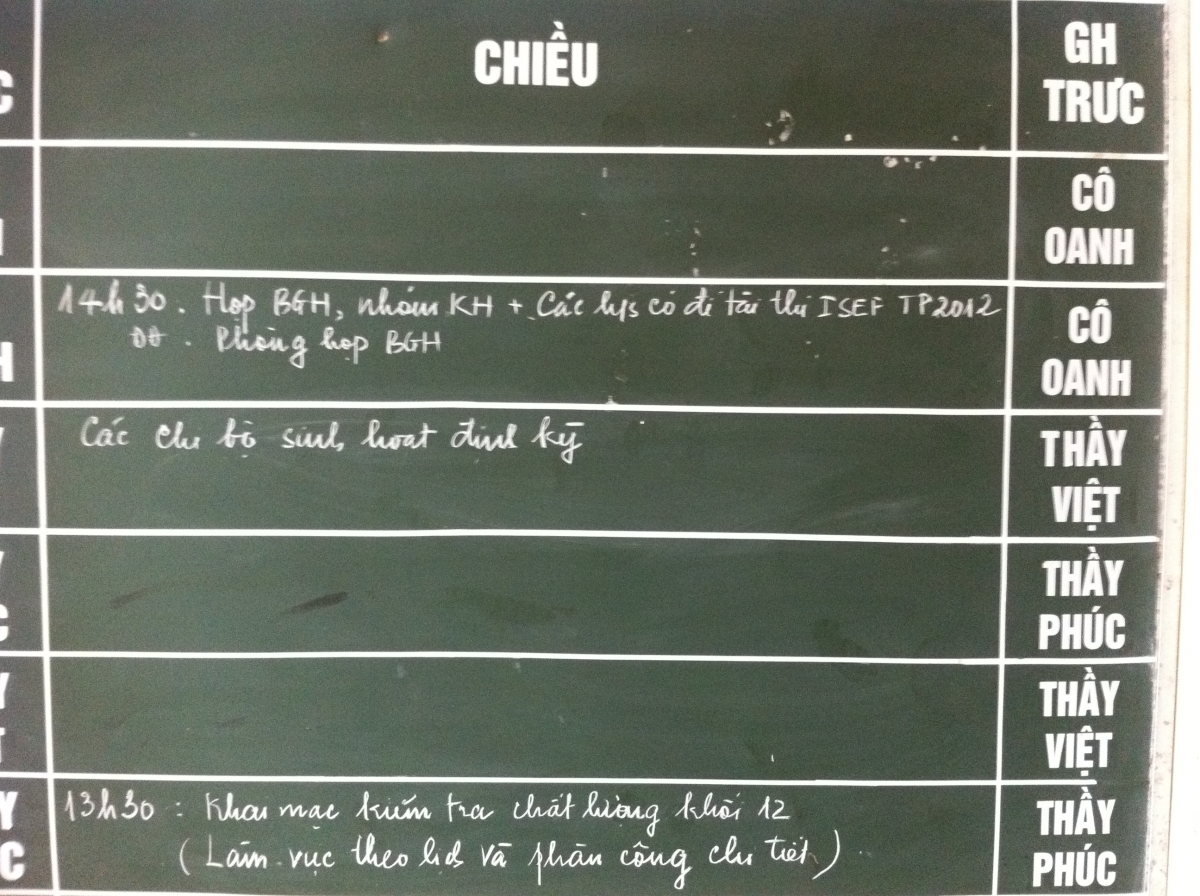 CHIỀU
GH
TRỰC
C
CÔ
OANH
14h30. Họp BGH, nhóm KH + Các hs có đề tài thi ISEF TP2012
DĐ. Phòng họp BGH
CÔ
OANH
H
Các chi bộ sinh hoạt định kỳ
THẦY
VIỆT
THẦY
PHÚC
C
THẦY
VIỆT
Y
T
13h30: Khai mạc kiểm tra chất lượng khối 12
(Làm việc theo lịch và phân công chi tiết)
THẦY
PHÚC
Y
C